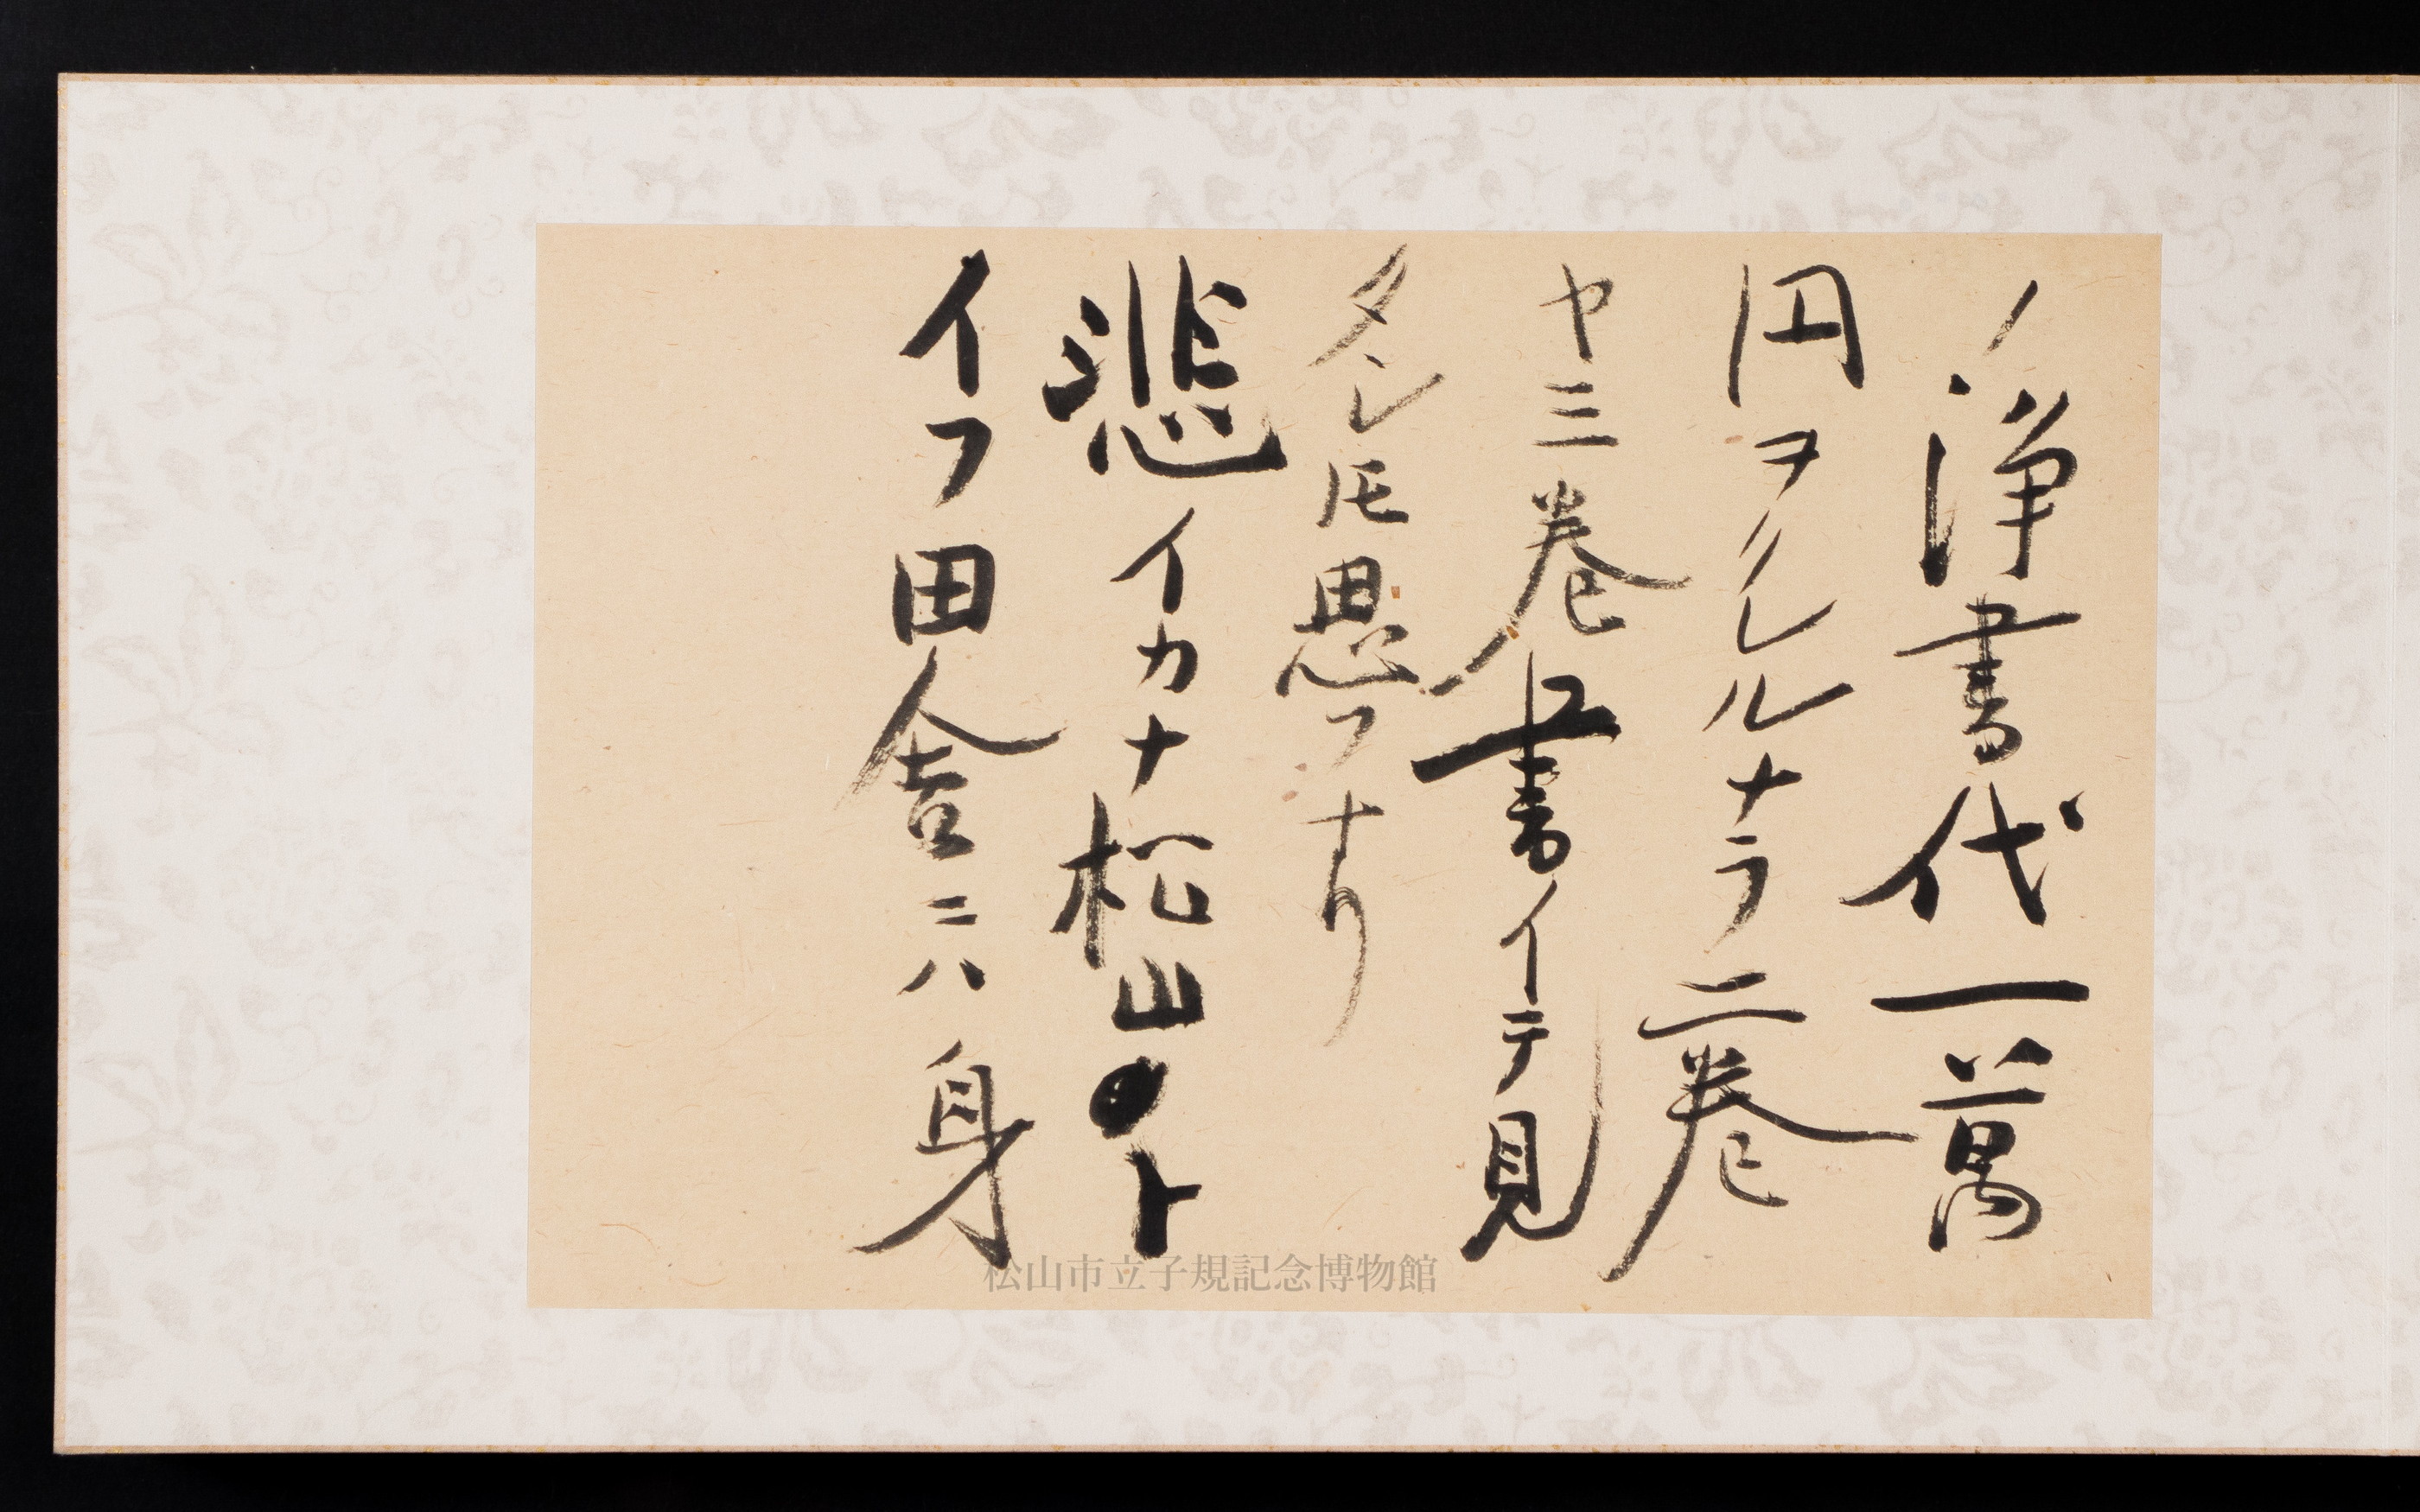 ノ浄書代一萬
円ヲクレルナラ二巻
ヤ三巻書イテ見
タレ𪜈思フナリ
悲イカナ松山ト
イフ田舎ニハ身
松山市立子規記念博物館